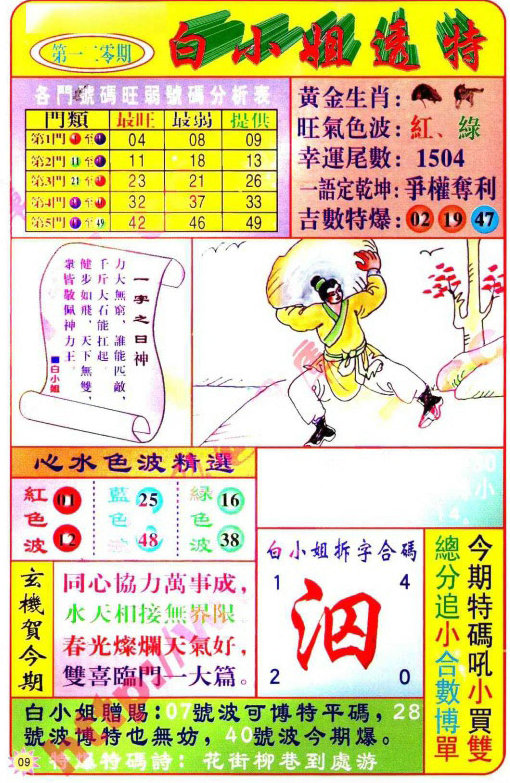 第一二零期
白小姐透特
各門號碼旺弱號碼分析表
門類 最旺 最弱 提供
第1門 至 04 08 09
第2門 11 至 11 18 13
第3門 21 至 23 21 26
第4門 至 32 37 33
第5門 至 49 42 46 49
黃金生肖：
旺氣色波：紅、綠
幸運尾數：1504
一語定乾坤：爭權奪利
吉數特爆：02 19 47
一字之曰神
力大無窮，誰能匹敵，
千斤大石能扛起。
健步如飛，天下無雙，
衆皆敬佩神力王。
■白小姐
心水色波精選
紅色波 01 12
藍色波 25 48
緑色波 16 38
白小姐拆字合碼
1 4
泅
2 0
今期特碼吼小買雙
總分追小合數博單
玄機賀今期
同心協力萬事成，
水天相接無界限
春光燦爛天氣好，
雙喜臨門一大篇。
白小姐贈賜：07號波可博特平碼，28
號波博特也無妨，40號波今期爆。
09
特爆特碼詩：花街柳巷到處游